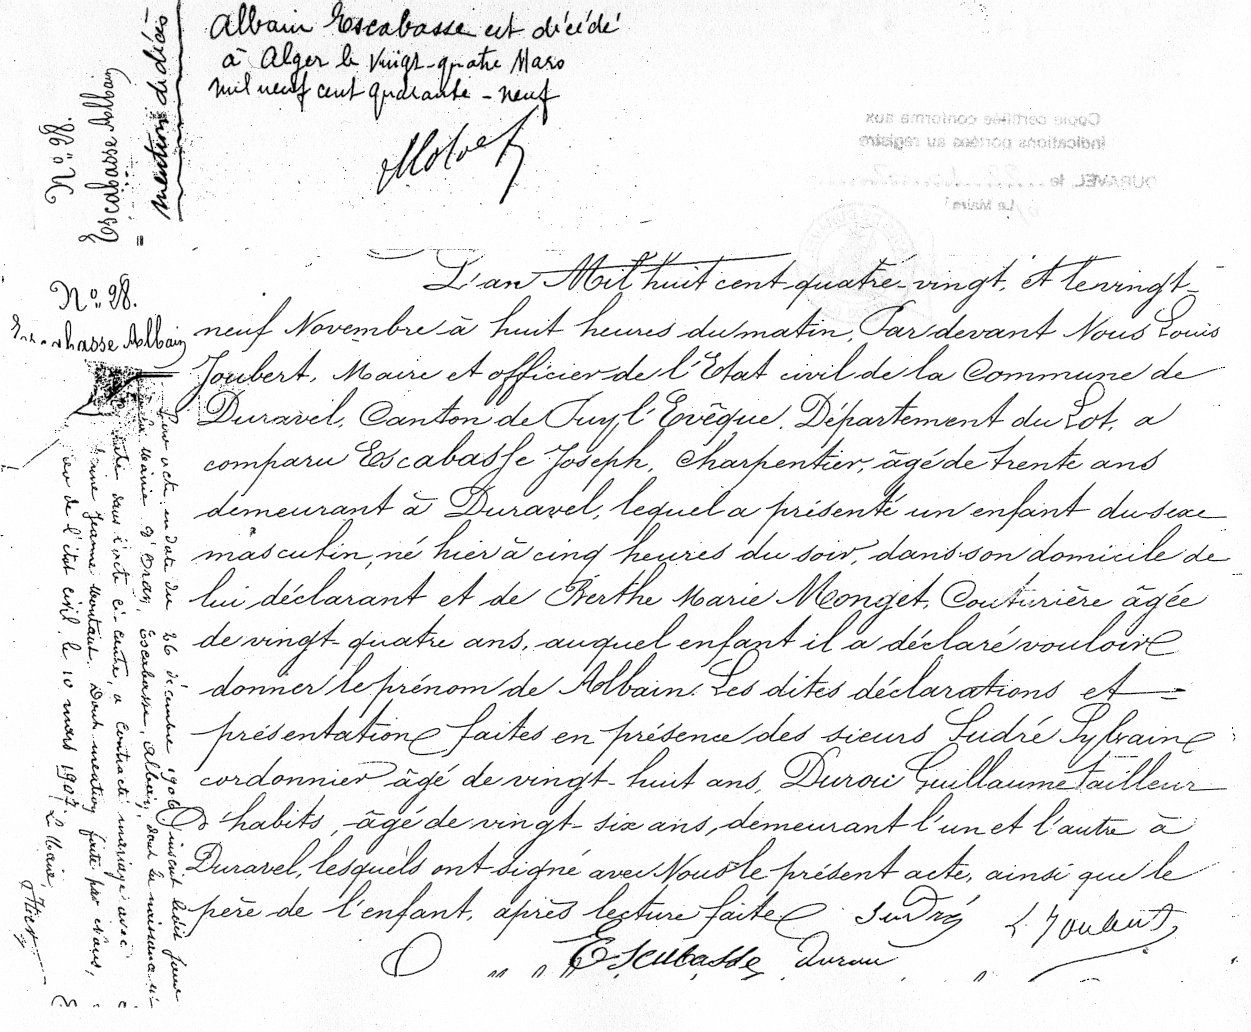 Albain Escabasse est décédé
à Alger le vingt-quatre Mars
mil neuf cent quarante-neuf
N° 28.
Escabasse Albain
mention d'décès
Copie certifiée conforme aux
indications portées au registre
DURAVEL, le
Le Maire
N° 28.
Escabasse Albain
L'an Mil huit cent quatre-vingt, et le vingt-
neuf Novembre à huit heures du matin, Par devant Nous Louis
Joubert, Maire et officier de l'Etat civil de la Commune de
Duravel, Canton de Puy l'Evêque, Département du Lot, a
comparu Escabasse Joseph, Charpentier, âgé de trente ans
demeurant à Duravel, lequel a présenté un enfant du sexe
masculin, né hier à cinq heures du soir, dans son domicile de
lui déclarant et de Berthe Marie Monget, Couturière âgée
de vingt-quatre ans, auquel enfant il a déclaré vouloir
donner le prénom de Albain. Les dites déclarations et
présentation faites en présence des sieurs Sudré Sylvain
cordonnier âgé de vingt-huit ans, Durou Guillaume tailleur
D'habits, âgé de vingt-six ans, demeurant l'un et l'autre à
Duravel, lesquels ont signé avec Nous le présent acte, ainsi que le
père de l'enfant, après lecture faite Sudré L Joubert
Escabasse Durou
Par acte en date du 26 décembre 1906 inscrit ledit jour
la Mairie d'Oran, Escabasse, Albain, dont la naissance
dans l'acte ci-contre, a contracté mariage avec
Jeanne Moutaut. Dont mention faite par nous,
de l'état civil le 10 mars 1907.
Le Maire,